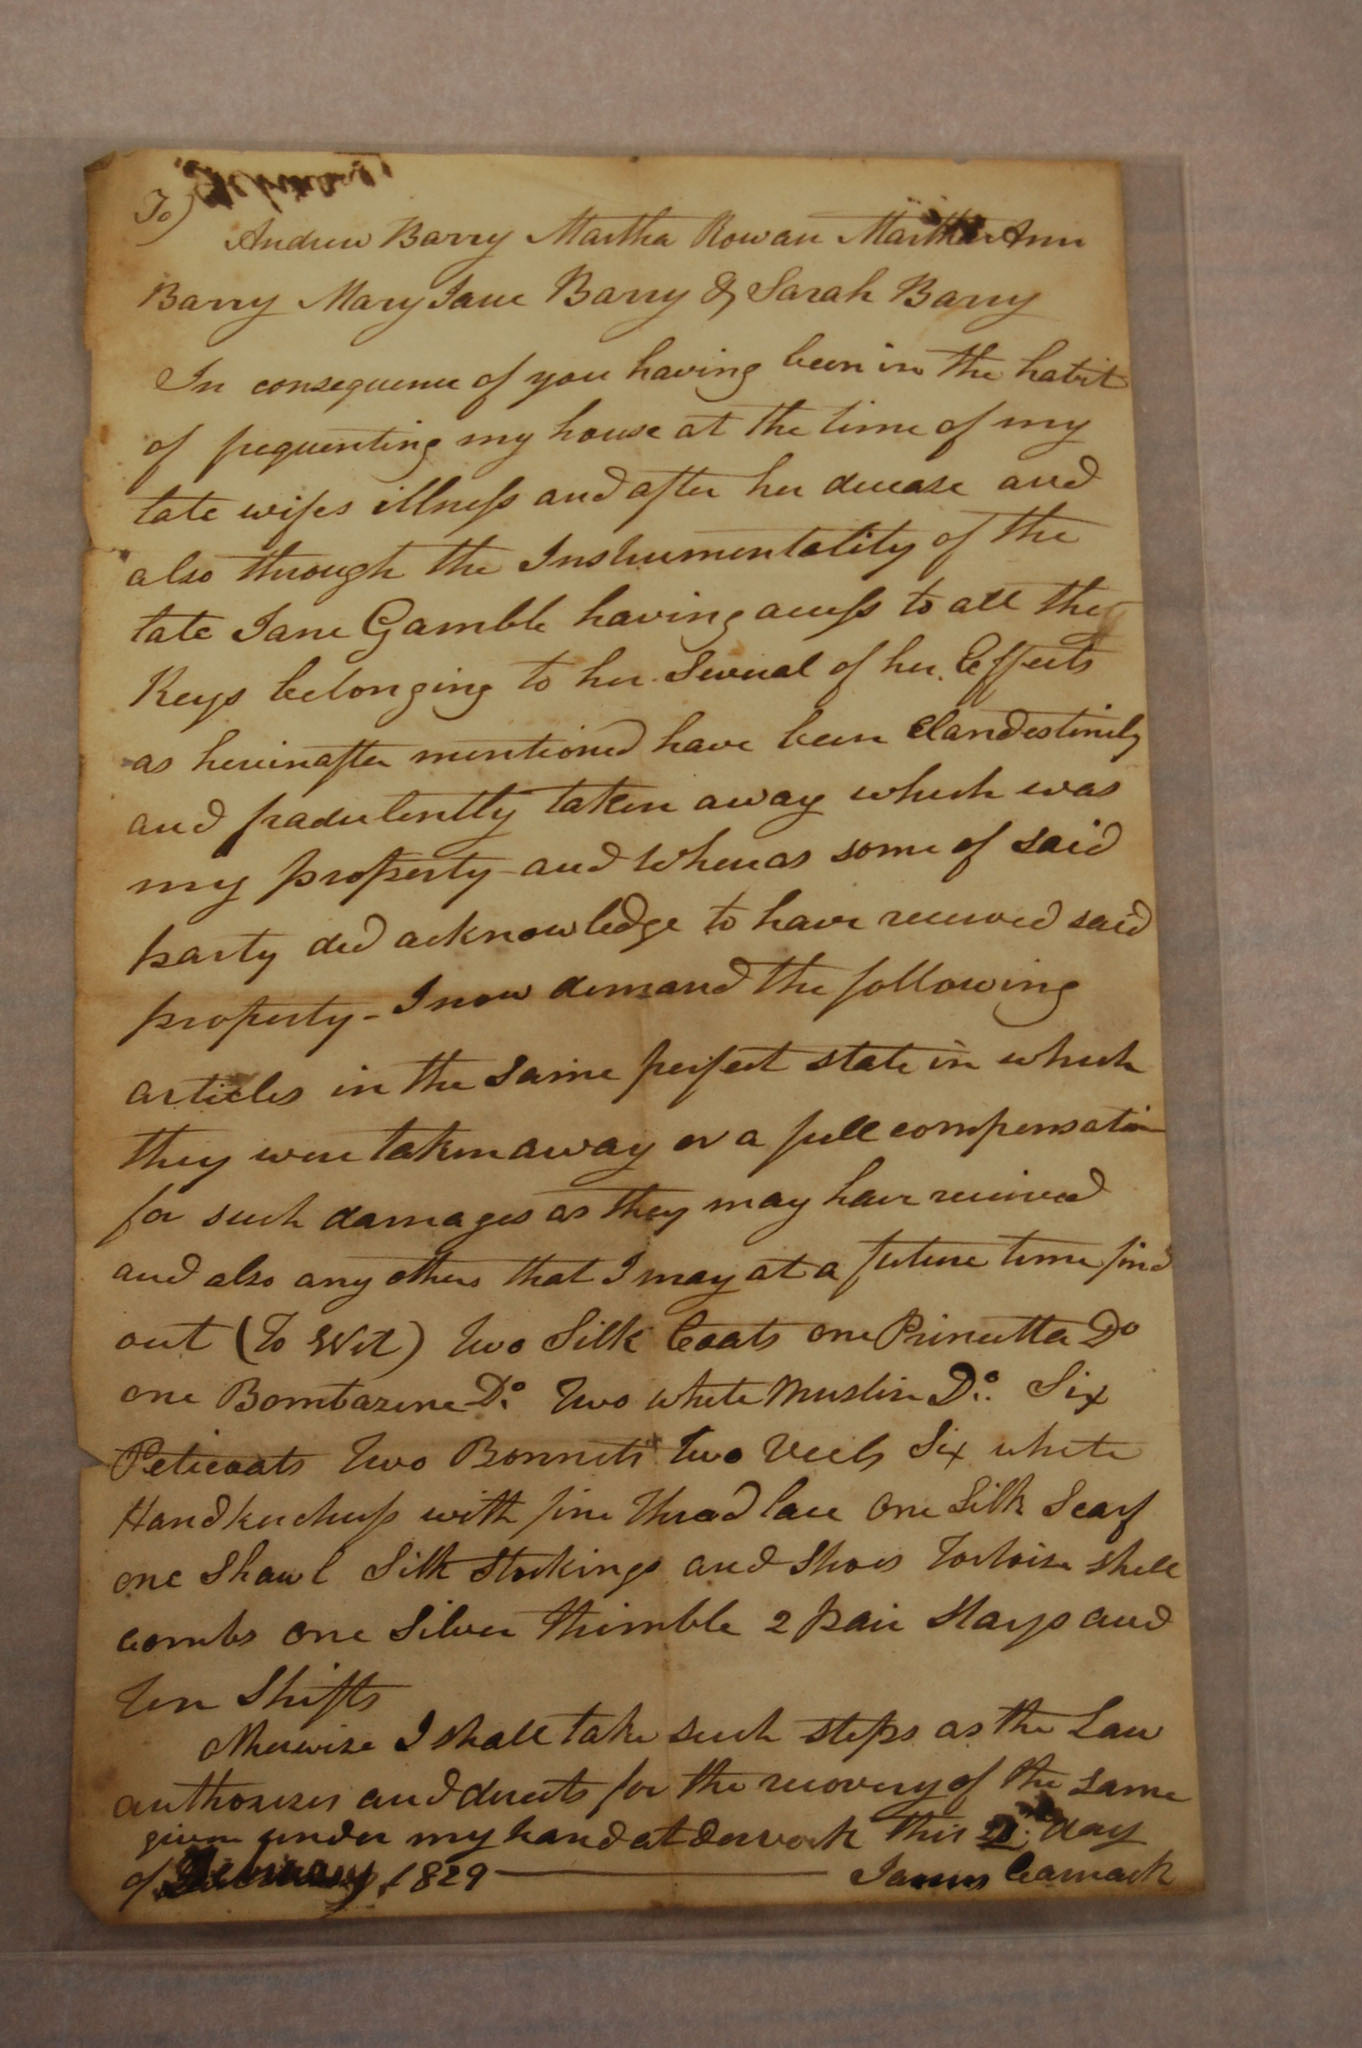 To)
Andrew Barry Martha Rowan Martha Ann
Barry Mary Jane Barry & Sarah Barry
In consequence of you having been in the habit
of frequenting my house at the time of my
late wifes illness and after her decease and
also through the Instrumentality of the
late Jane Gamble having access to all the
Keys belonging to her Several of her Effects
as hereinafter mentioned have been Clandestinely
and fradulently taken away which was
my property and Whereas some of said
party did acknowledge to have received said
property - I now demand the following
articles in the same perfect state in which
they were taken away or a full compensation
for such damages as they may have received
and also any others that I may at a future time find
out (To Wit) Two Silk Coats one Prinetta Do
one Bombazene Do. Two white Muslin Do. Six
Peticoats Two Bonnets Two Veels Six white
Handkercheifs with fine Thread lace One Silk Scarf
one Shawl Silk Stockings and Shoes Tortoise shell
combs one Silver Thimble 2 pair Stays and
Ten Shifts
Otherwise I shall take such steps as the Law
authorizes and directs for the recovery of the same
given under my hand at Dervock this day
of February 1829 James Camack